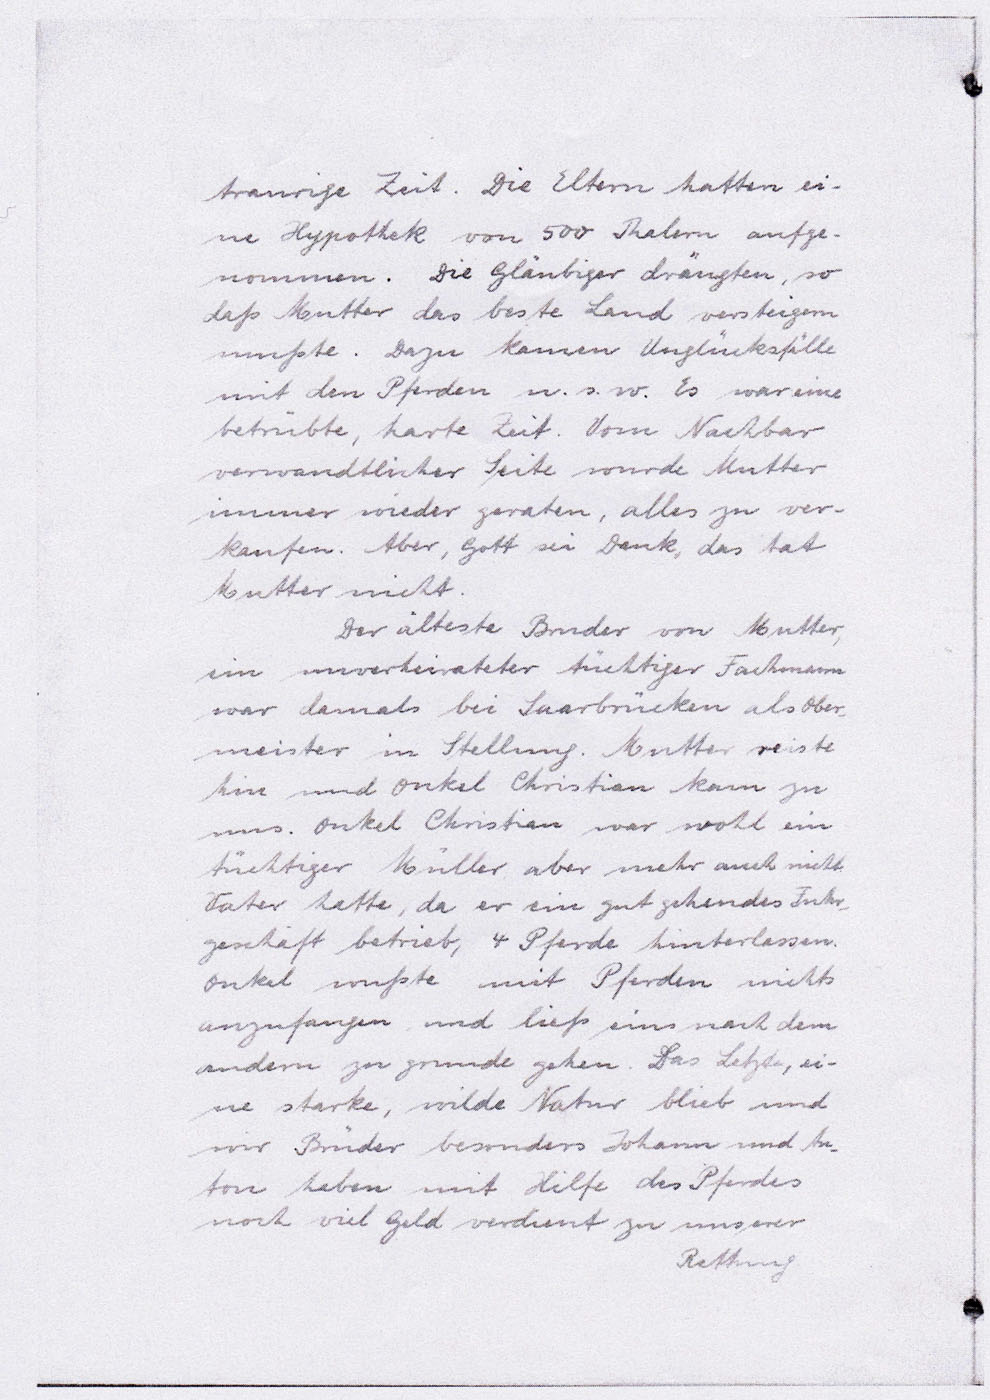 traurige Zeit. Die Eltern hatten ei-
ne Hypothek von 500 Thalern aufge-
nommen. Die Gläubiger drängten, so
daß Mutter das beste Land versteigern
mußte. Dazu kamen Unglücksfälle
mit den Pferden u. s. w. Es war eine
betrübte, harte Zeit. Vom Nachbar
verwandtlicher Seite wurde Mutter
immer wieder geraten, alles zu ver-
kaufen. Aber, Gott sei Dank, das tat
Mutter nicht.
Der älteste Bruder von Mutter,
ein unverheirateter tüchtiger Fachmann
war damals bei Saarbrücken als Ober-
meister in Stellung. Mutter reiste
hin und Onkel Christian kam zu
uns. Onkel Christian war wohl ein
tüchtiger Müller aber mehr auch nicht.
Vater hatte, da er ein gut gehendes Fuhr-
geschäft betrieb, 4 Pferde hinterlassen.
Onkel wußte mit Pferden nichts
anzufangen und ließ eins nach dem
andern zu grunde gehen. Das Letzte, ei-
ne starke, wilde Natur blieb und
wir Brüder besonders Johann und An-
ton haben mit Hilfe des Pferdes
noch viel Geld verdient zu unserer
Rettung